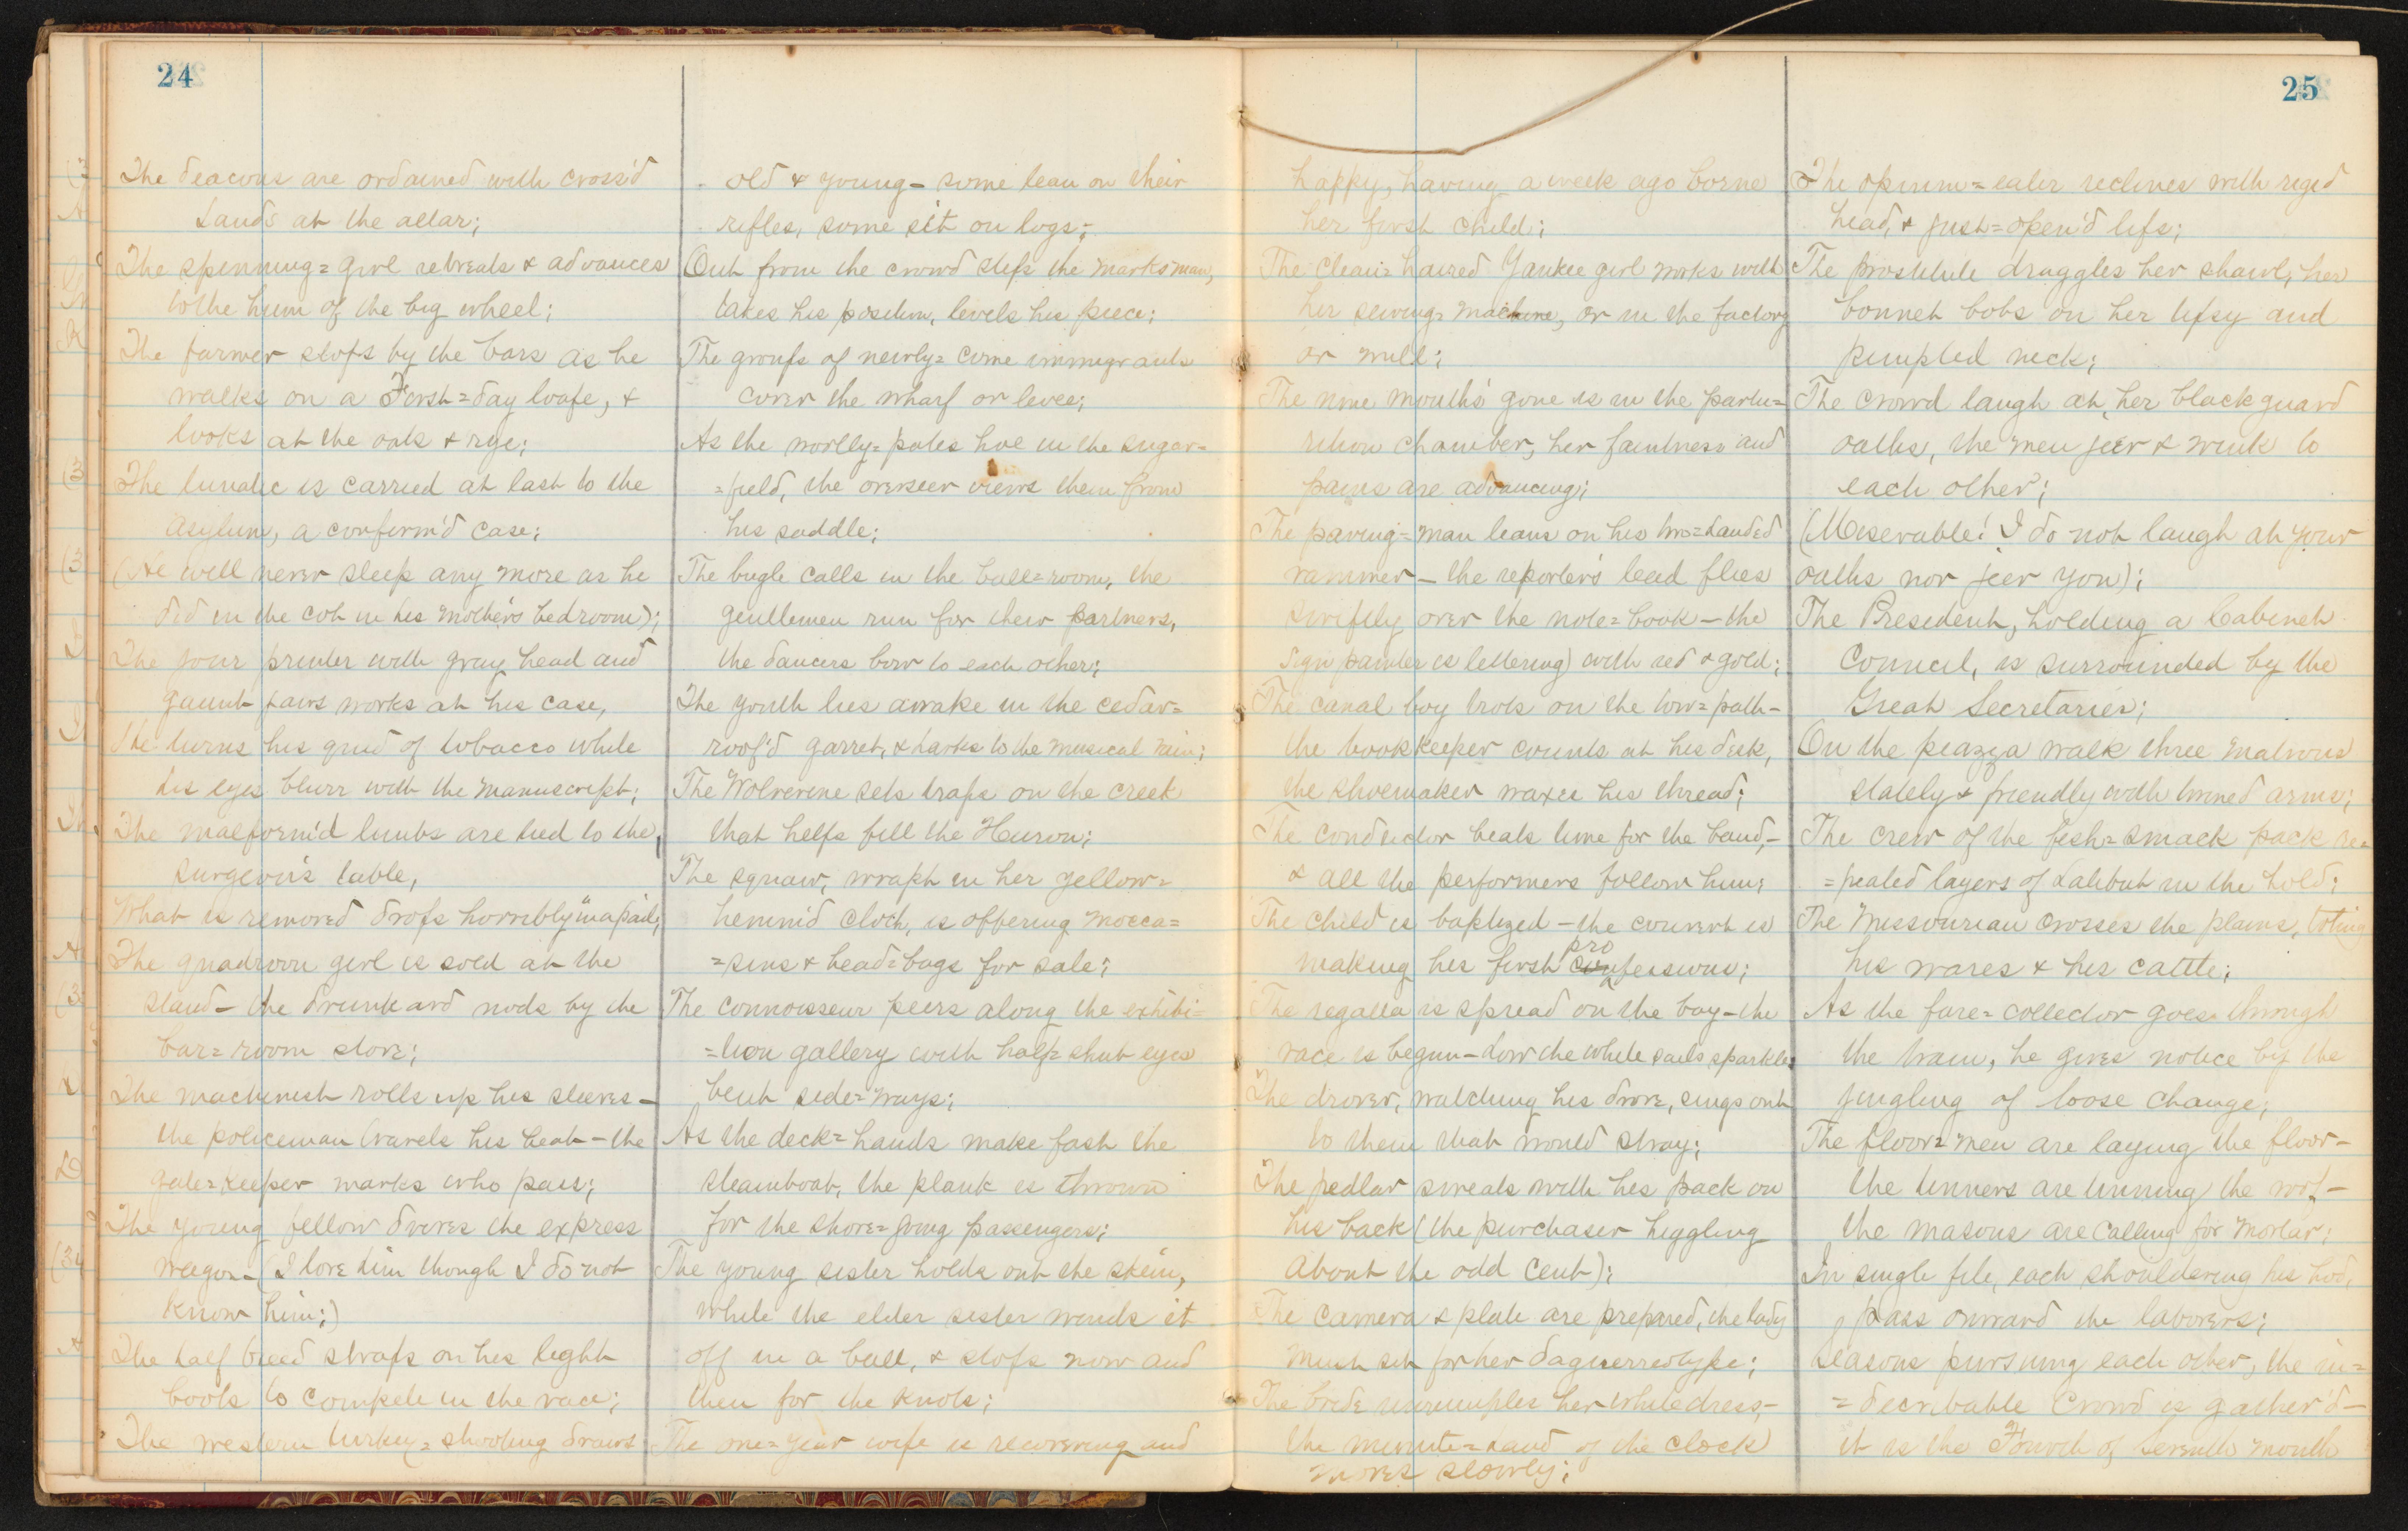 24
The deacons are ordained with cross'd
hands at the altar;
The spinning=girl retreats & advances
to the hum of the big wheel;
The farmer stops by the bars as he
walks on a First=day loafe, &
looks at the oats & rye;
The lunatic is carried at last to the
asylum, a confirm'd case;
(He will never sleep any more as he
did in the cot in his mother's bedroom);
The jour printer with gray head and
gaunt jaws works at his case,
He turns his quid of tobacco while
his eyes blurr with the manuscript;
The malform'd limbs are tied to the
surgeon's table,
What is removed drops horribly in a pail;
The quadroon girl is sold at the
stand – the drunkard nods by the
bar=room stove;
The machinist rolls up his sleeves –
the policeman travels his beat – the
gate=keeper marks who pass;
The young fellow drives the express
wagon – (I love him though I do not
know him;)
The half breed straps on his light
boots to compete in the race;
The western turkey=shooting draws
old & young – some lean on their
rifles, some sit on logs;
Out from the crowd steps the marksman,
takes his position, levels his piece;
The groups of newly=come immigrants
cover the wharf or levee;
As the woolly=pates hoe in the sugar=
=field, the overseer views them from
his saddle;
The bugle calls in the ball=room, the
gentlemen run for their partners,
the dancers bow to each other;
The youth lies awake in the cedar=
roof'd garret, & harks to the musical rain;
The Wolverine sets traps on the creek
that helps fill the Huron;
The squaw, wrapt in her yellow=
hemm'd cloth, is offering mocca=
=sins & bead=bags for sale;
The connoisseur peers along the exhibi=
=tion gallery with half=shut eyes
bent side=ways;
As the deck=hands make fast the
steamboat, the plank is thrown
for the shore=going passengers;
The young sister holds out the skein,
while the elder sister winds it
off in a ball, & stops now and
then for the knots;
The one=year wife is recovering and
25
happy, having a week ago borne
her first child;
The clean=haired Yankee girl works with
her sewing=machine, or in the factory
or mill;
The nine months' gone is in the partu=
rition chamber, her faintness and
pains are advancing;
The paving=man leans on his two=handed
rammer – the reporter's lead flies
swiftly over the note=book – the
sign painter is lettering with red & gold;
The canal boy trots on the tow=path –
the bookkeeper counts at his desk,
the shoemaker waxes his thread;
The conductor beats time for the band, –
& all the performers follow him;
The child is baptized – the convert is
pro
making his first confessions;
The regatta is spread on the bay – the
race is begun – how the white sails sparkle;
The drover, watching his drove, sings out
to them that would stray;
The pedlar sweats with his pack on
his back (the purchaser higgling
about the odd cent);
The camera & plate are prepared, the lady
must sit for her daguerreotype;
The bride unrumples her white dress, –
the minute=hand of the clock
moves slowly;
The opium=eater reclines with rigid
head, & just=open'd lips;
The prostitute draggles her shawl, her
bonnet bobs on her tipsy and
pimpled neck;
The crowd laugh at her blackguard
oaths, the men jeer & wink to
each other;
(Miserable! I do not laugh at your
oaths nor jeer you);
The President, holding a Cabinet
Council, is surrounded by the
Great Secretaries;
On the piazza walk three matrons
stately & friendly with twined arms;
The crew of the fish=smack pack re=
=peated layers of halibut in the hold;
The Missourian crosses the plains, toting
his wares & his cattle;
As the fare=collector goes through
the train, he gives notice by the
jingling of loose change;
The floor=men are laying the floor –
the tinners are tinning the roof –
the masons are calling for mortar;
In single file, each shouldering his hod,
pass onward the laborers;
Seasons pursuing each other, the in=
=decribable crowd is gather'd –
it is the Fourth of Seventh month